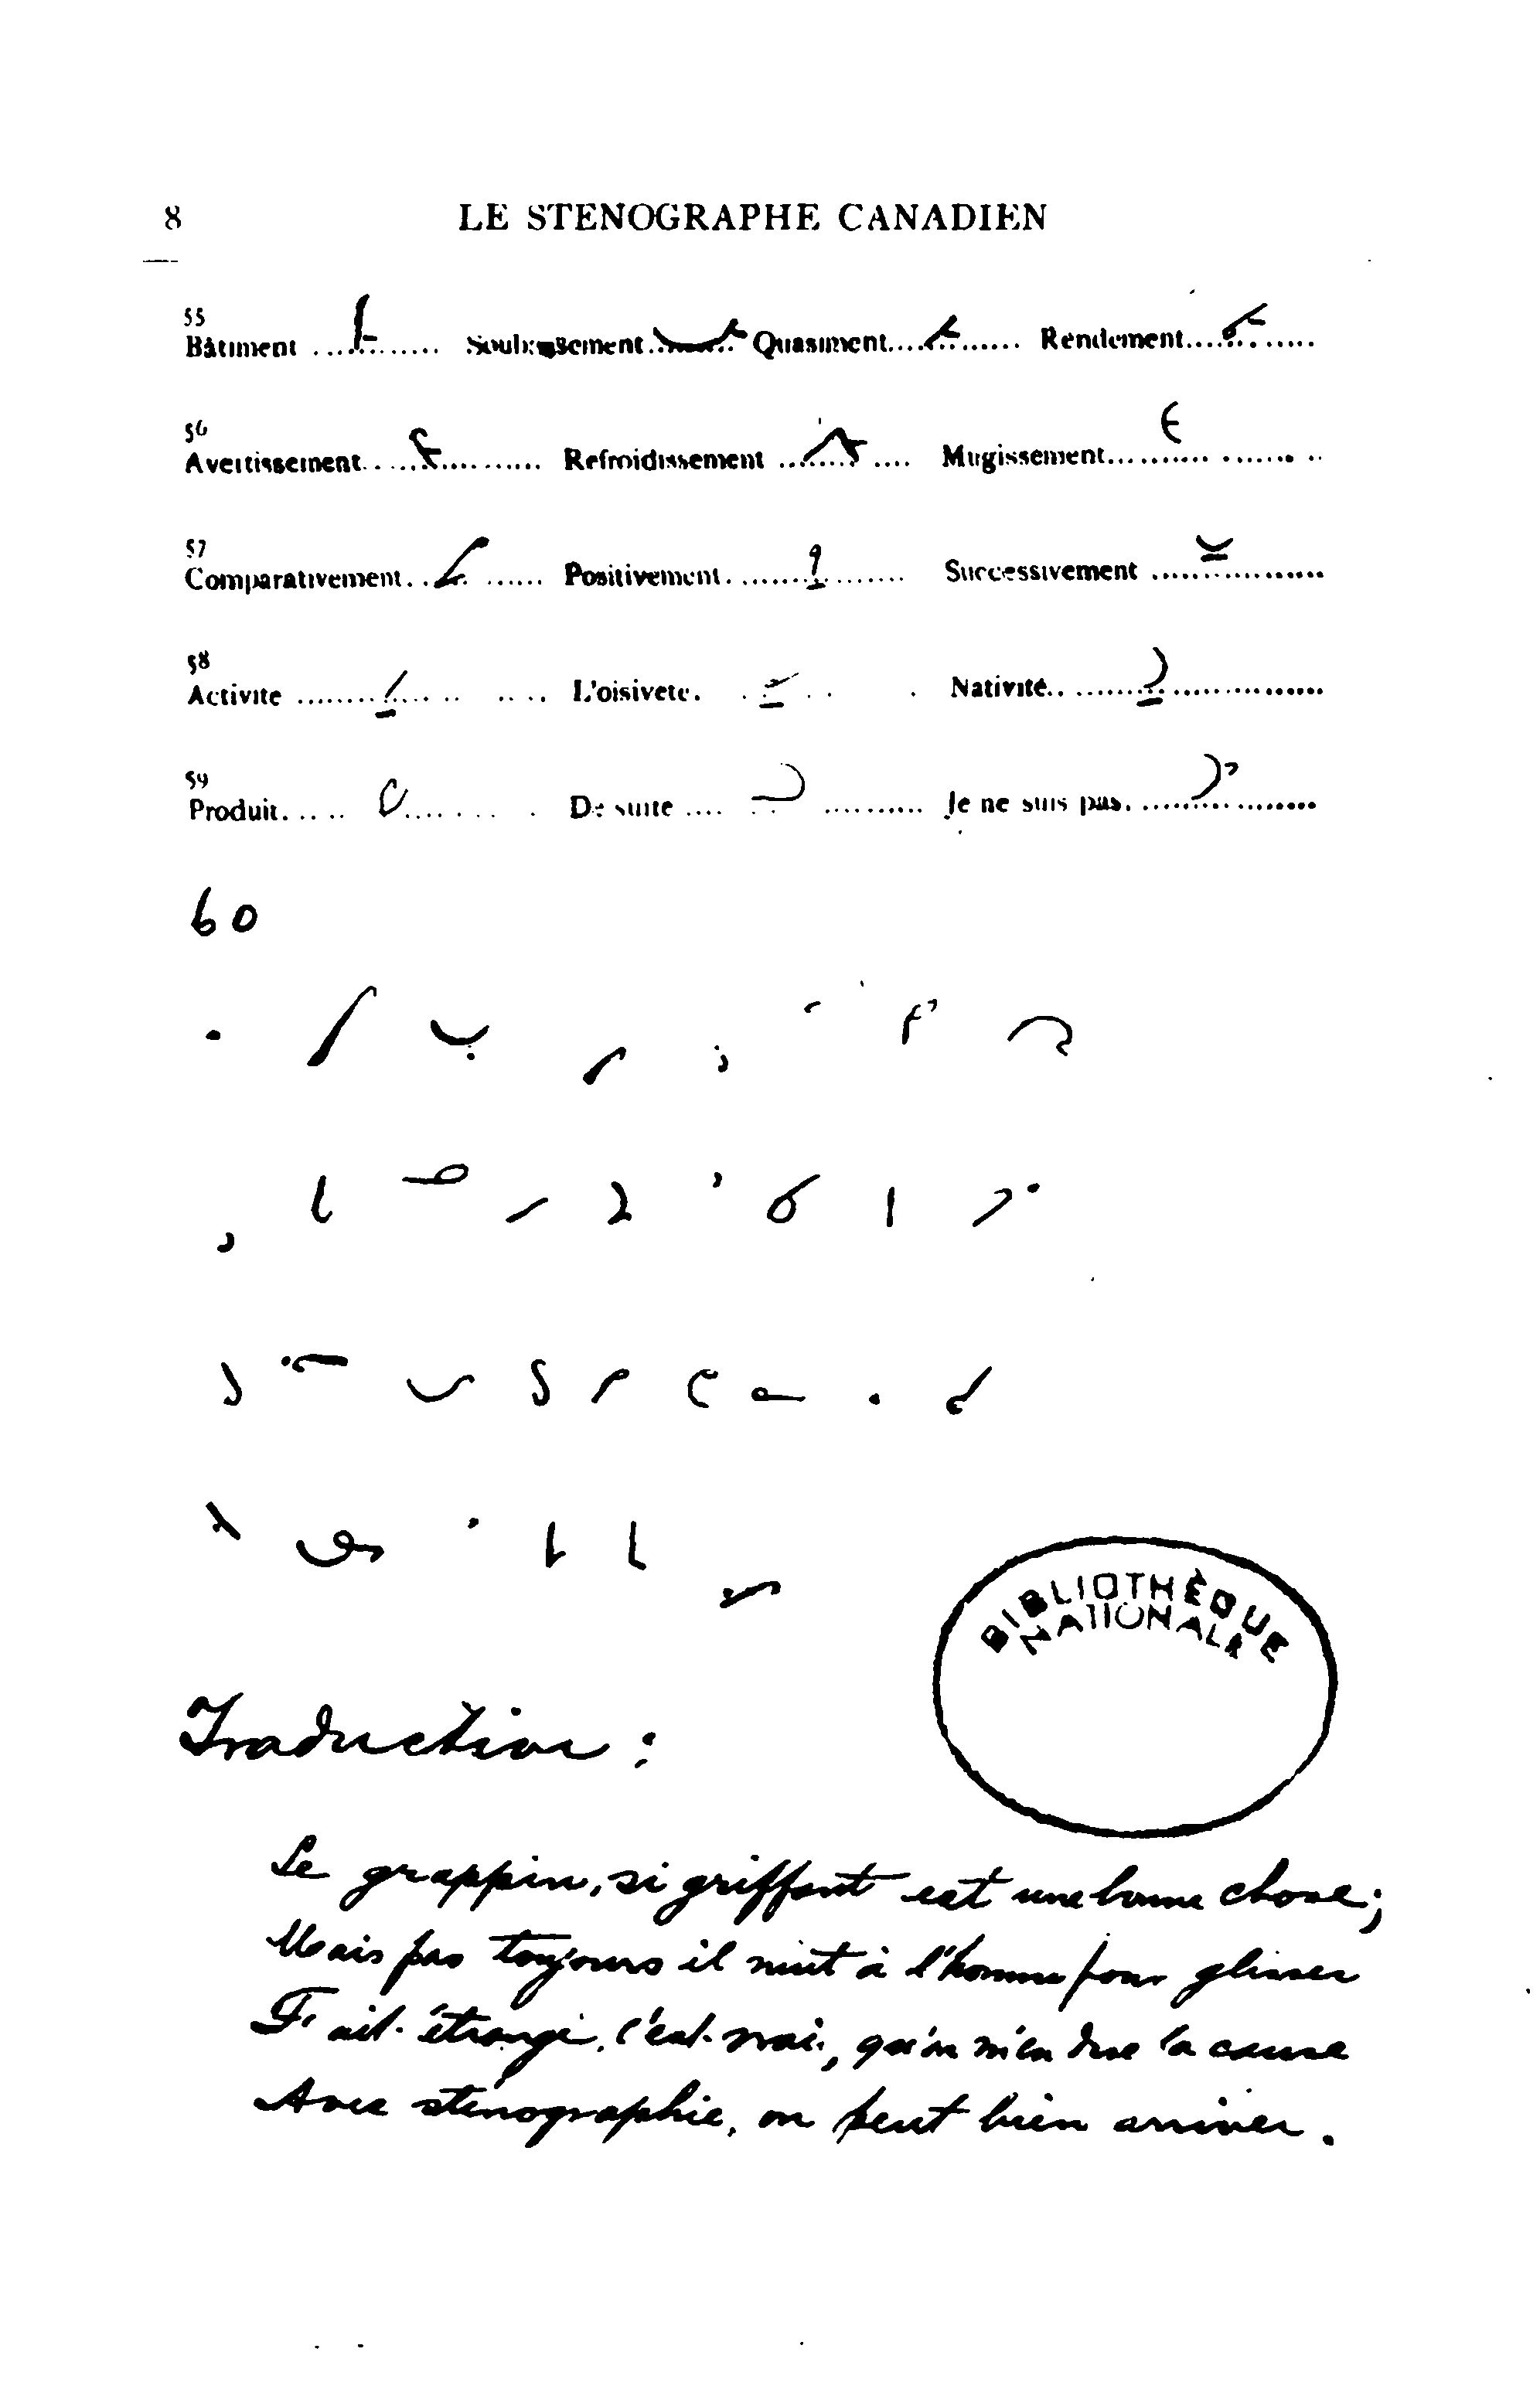 8 LE STENOGRAPHE CANADIEN
55
Bâtiment .......... Quasiment .......... Rendement ..........
56
Avertissement .......... Refroidissement .......... Mugissement ..........
57
Comparativement .......... Positivement .......... Successivement ..........
58
Activite .......... L'oisivete. .......... Nativité ..........
59
Produit .......... De suite .......... Je ne suis pas ..........
60
BIBLIOTHÈQUE
NATIONALE
Traduction :
Le grappin, si griffant est une bonne chose ;
Mais pas toujours il nuit à l'homme pour glisser
Fait étrange, c'est vrai, qu'on m'en dise la cause
Avec sténographie, on peut bien arriver.